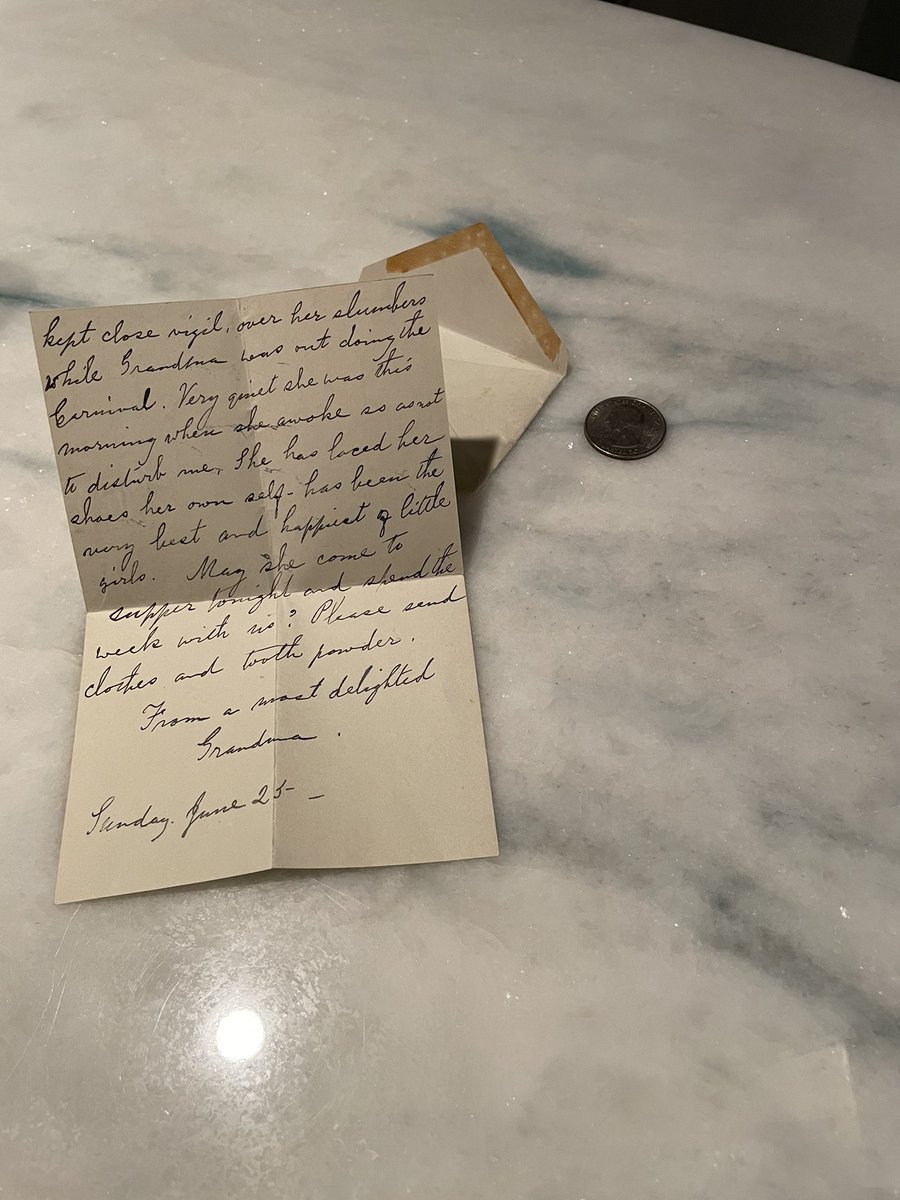 kept close vigil, over her slumbers
while Grandma was out doing the
Carnival. Very quiet she was this
morning when she awoke so as not
to disturb me. She has laced her
shoes her own self - has been the
very best and happiest of little
girls. May she come to
supper tonight and spend the
week with us? Please send
clothes and tooth powder.
From a most delighted
Grandma.
Sunday. June 25 -